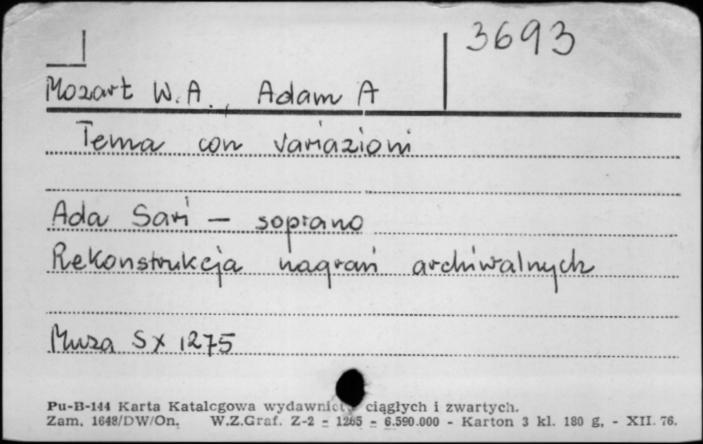 3693
Mozart W.A., Adam A
Tema con variazioni
Ada Sari - soprano
Rekonstrukcja nagrań archiwalnych
Muza SX 1275
Pu-B-144 Karta Katalogowa wydawnictw ciągłych i zwartych.
Zam. 1648/DW/On. W.Z.Graf. Z-2 - 1265 - 6.590.000 - Karton 3 kl. 180 g. - XII. 76.